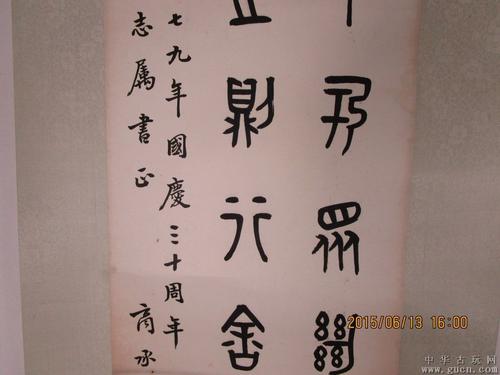 眾
則行舍
七九年國慶三十周年
志属書正 商承
2015/06/13 16:00
中华古玩网
www.gucn.com